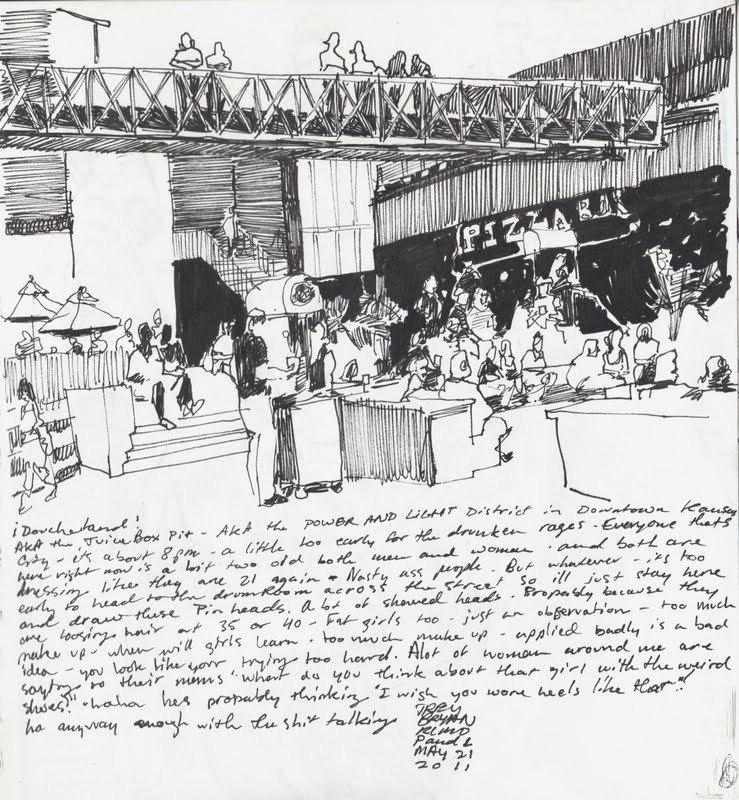 PIZZA BAR
¡Doucheland!
AKA the Juice Box Pit - AKA the POWER AND LIGHT District in Downtown Kansas
City - its about 8pm - a little too early for the drunken rages. Everyone thats
here right now is a bit two old both men and women. and both are
dressing like they are 21 again. Nasty ass people. But whatever - its too
early to head to the drumRoom across the street so ill just stay here
and draw these Pin heads. A lot of shaved heads. Propably because they
are loosing hair at 35 or 40 - Fat girls too - just an observation - too much
make up - when will girls learn. too much make up - applied badly is a bad
idea - you look like your trying too hard. Alot of woman around me are
saying to their mens "what do you think about that girl with the weird
shoes?" haha hes propably thinking "I wish you wore heels like that!"
ha anyway enough with the shit talking
BRYAN
MAY 21
2011